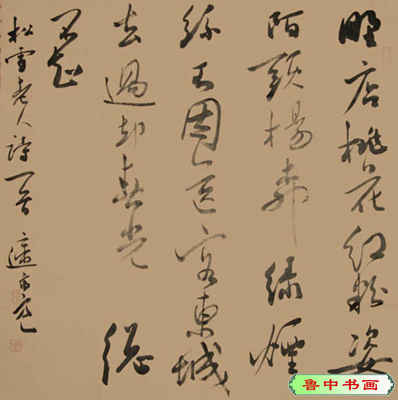 野店桃花红粉姿
陌頭楊柳緑煙
絲不因送客東城
去過却春光總
不知
松雪老人詩一首
鲁中书画